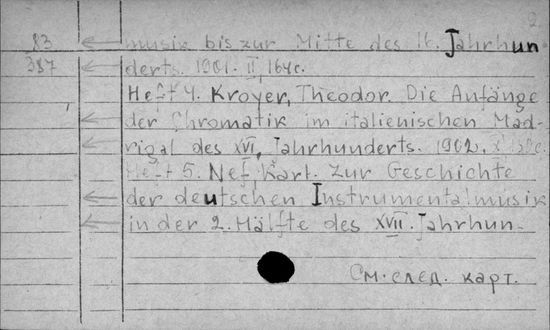 2.
83 musik bis zur Mitte des 16. Jahrhun
387 derts. 1901. II, 164c.
Heft 4. Kroyer, Theodor. Die Anfänge
der Chromatik im italienischen Mad-
rigal des XVI. Jahrhunderts. 1902.
Heft 5. Nef, Karl. Zur Geschichte
der deutschen Instrumentalmusik
in der 2. Hälfte des XVII. Jahrhun-
См. след. карт.